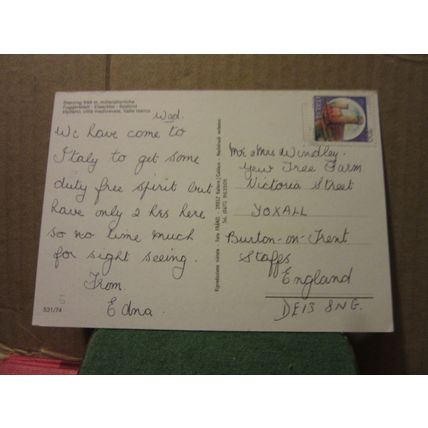 Sterzing 948 m, mittelalterliche
Fuggerstadt - Eisacktal - Südtirol
Vipiteno, città medioevale, Valle Isarco
Wed.
We have come to
Italy to get some
duty free spirit but
have only 2 hrs here
so no time much
for sight seeing.
From
Edna.
531/74
Mr & Mrs Windley.
Yew Tree Farm
Victoria Street
YOXALL
Burton-on-Trent
Staffs
England
DE13 8NG.